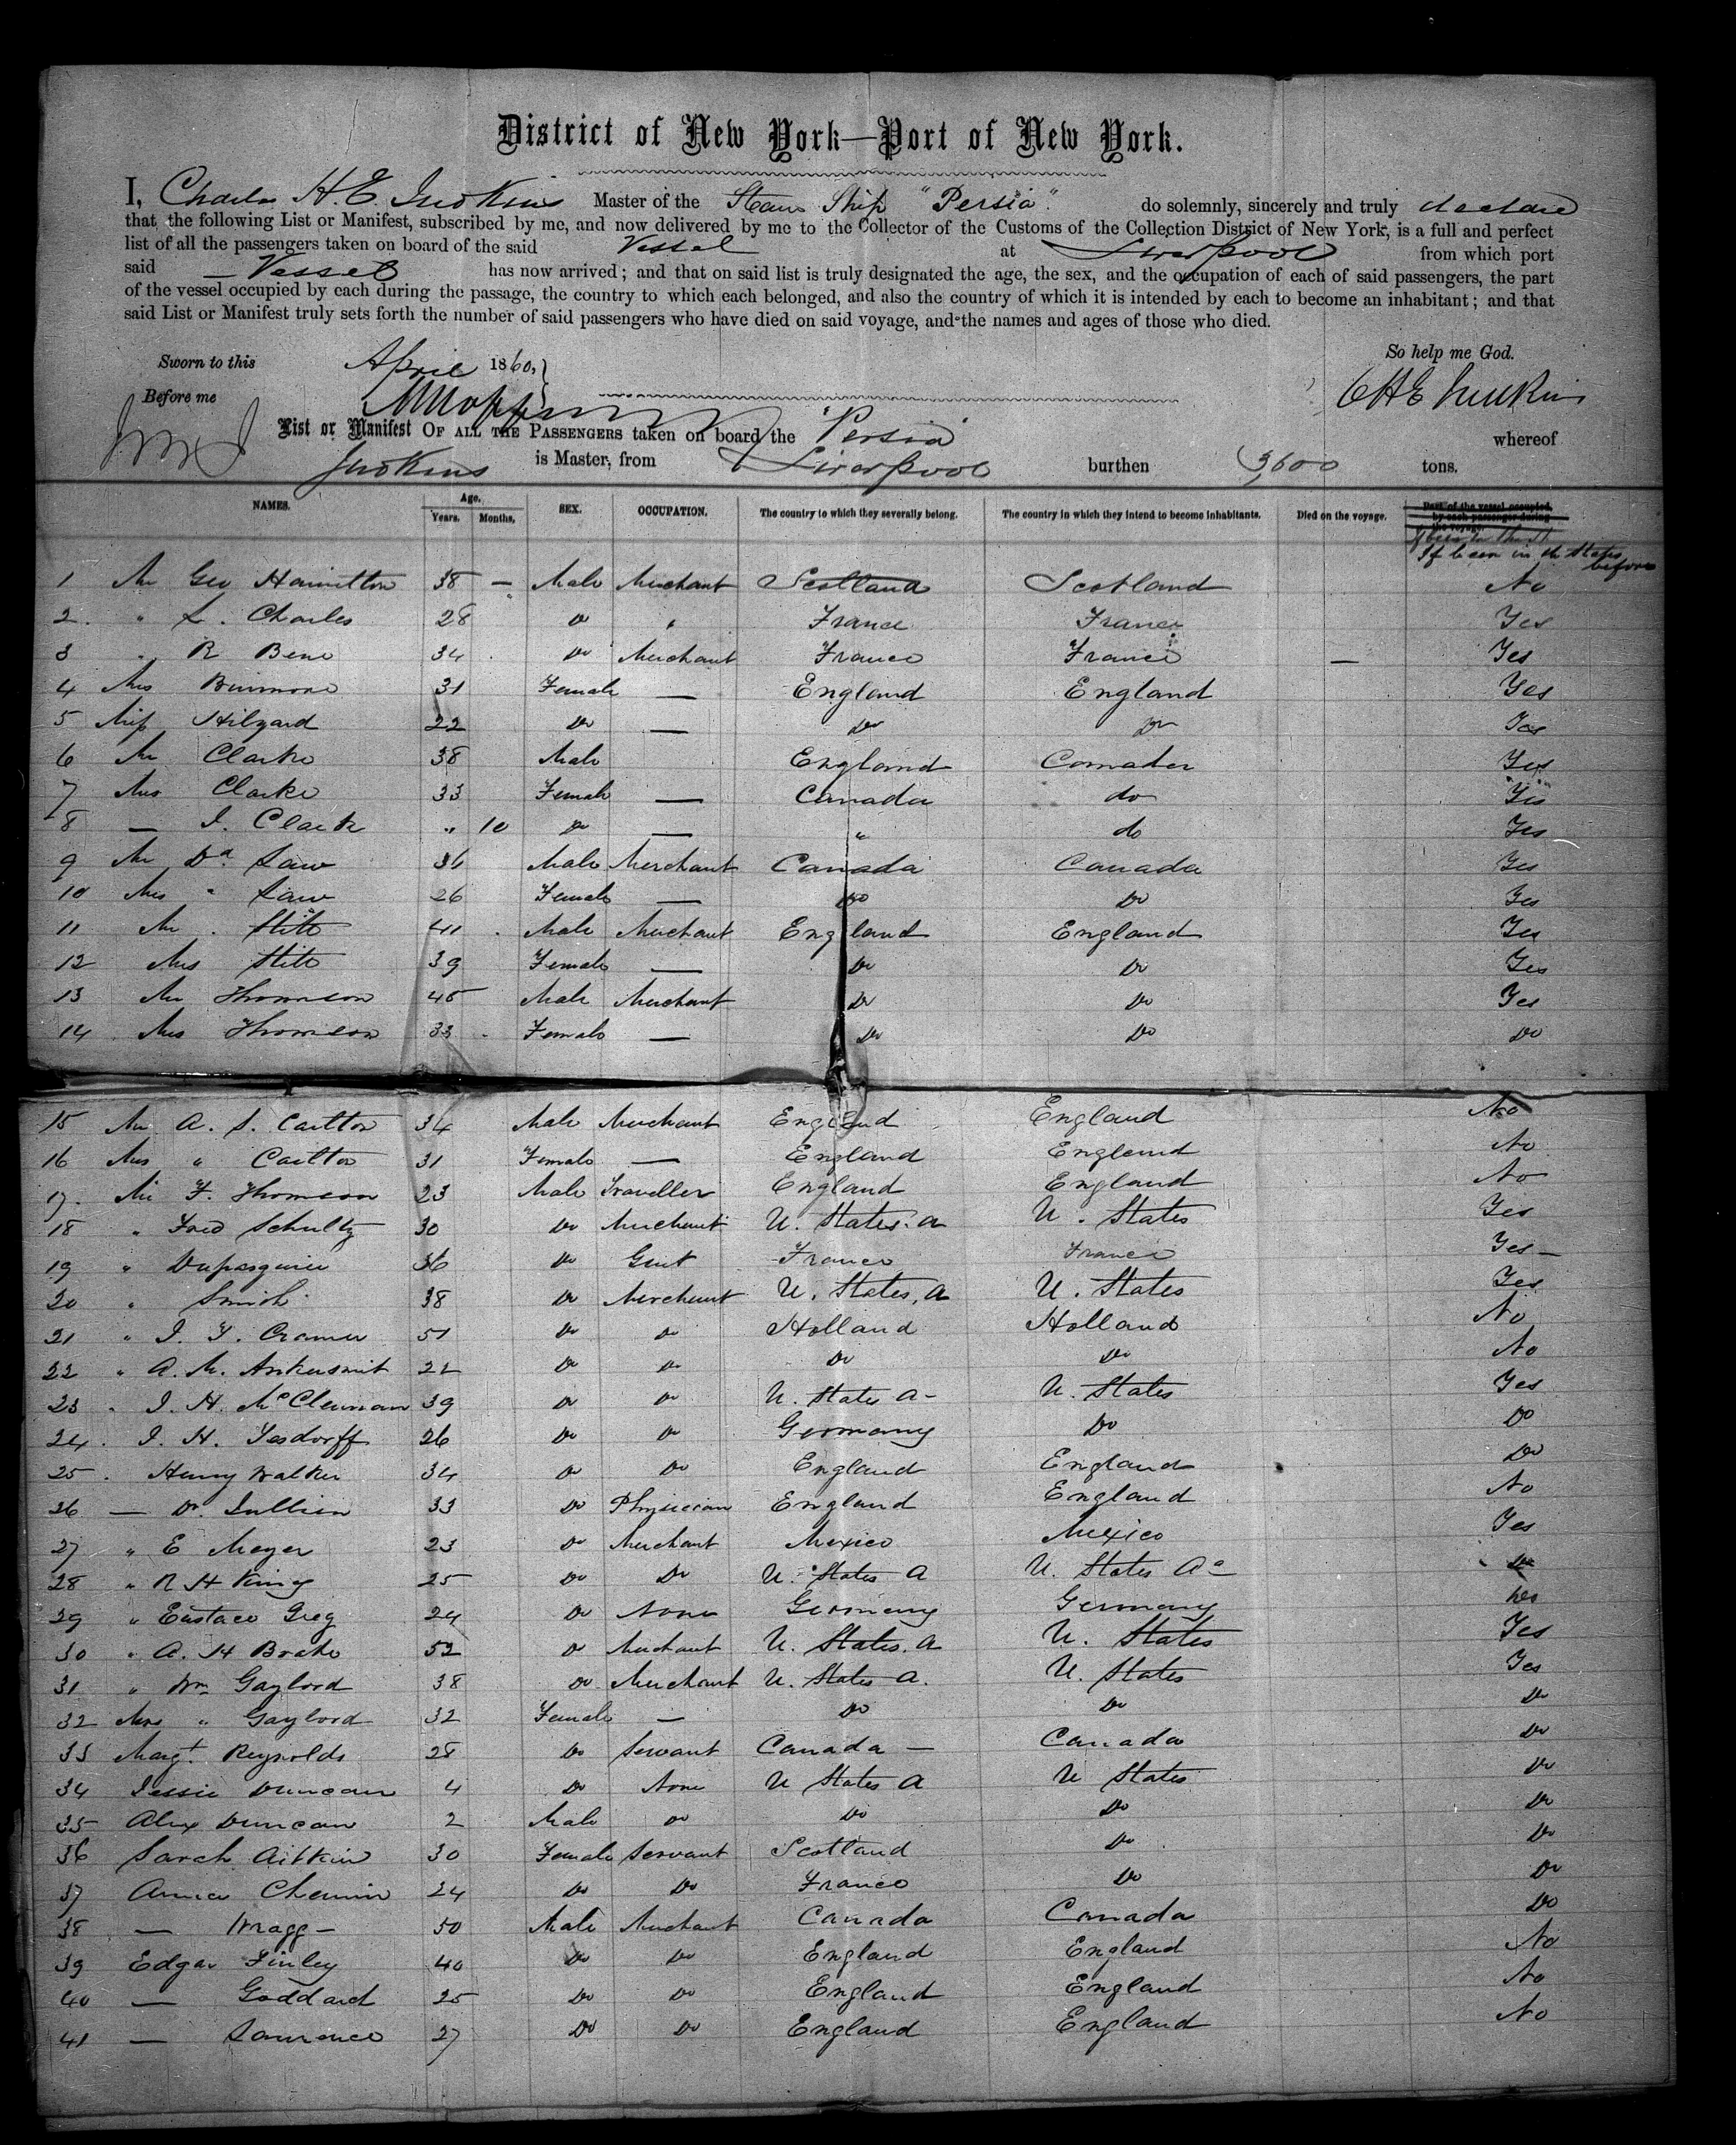 District of New York—Port of New York.
I, Charles H. E. Judkins Master of the Steam Ship "Persia" do solemnly, sincerely and truly declare
that the following List or Manifest, subscribed by me, and now delivered by me to the Collector of the Customs of the Collection District of New York, is a full and perfect
list of all the passengers taken on board of the said Vessel at Liverpool from which port
said Vessel has now arrived; and that on said list is truly designated the age, the sex, and the occupation of each of said passengers, the part
of the vessel occupied by each during the passage, the country to which each belonged, and also the country of which it is intended by each to become an inhabitant; and that
said List or Manifest truly sets forth the number of said passengers who have died on said voyage, and the names and ages of those who died.
So help me God.
Sworn to this April 1860,
Before me
CHE Judkins
List or Manifest OF ALL THE PASSENGERS taken on board the "Persia" whereof
Judkins is Master, from Liverpool burthen 3,600 tons.
NAMES. Age. Years. Months. SEX. OCCUPATION. The country to which they severally belong. The country in which they intend to become inhabitants. Died on the voyage. Part of the vessel occupied by each passenger during the voyage.
If been in the States before
1 Mr Geo Hamilton 38 — Male Merchant Scotland Scotland No
2. " L. Charles 28 Do " France France Yes
3 " R Bene 34 Do Merchant France France — Yes
4 Mrs Binmore 31 Female — England England Yes
5 Miss Hilyard 22 Do — Do Do Yes
6 Mr Clarke 38 Male England Canada Yes
7 Mrs Clarke 33 Female — Canada do Yes
8 — I. Clark " 10 Do — " do Yes
9 Mr Dd Law 36 Male Merchant Canada Canada Yes
10 Mrs " Law 26 Female — Do Do Yes
11 Mr Stitt 41 Male Merchant England England Yes
12 Mrs Stitt 39 Female — Do Do Yes
13 Mr Thomson 45 Male Merchant Do Do Yes
14 Mrs Thomson 33 Female — Do Do Do
15 Mr A. S. Carlton 34 Male Merchant England England No
16 Mrs " Carlton 31 Female — England England No
17. Mr F. Thomson 23 Male Traveller England England No
18 " Fred Schultz 30 Do Merchant U. States. a U. States Yes
19 " Dupasquier 36 Do Gent France France Yes —
20 " Smith 38 Do Merchant U. States, a U. States Yes
21 " I. Y. Cramer 51 Do Do Holland Holland No
22 " A. M. Ankersmit 22 Do Do Do Do No
23 " I. H. McClennan 39 Do Do U. States a- U. States Yes
24. I. H. Yesdorff 26 Do Do Germany Do Do
25. Henry Walker 34 Do Do England England Do
26 — Dr. Jullien 33 Do Physician England England No
27 " E Meyer 23 Do Merchant Mexico Mexico Yes
28 " R H King 25 Do Do U. States A U. States Aa Do
29 " Eustace Greg 24 Do None Germany Germany Yes
30 " A. H Brake 52 Do Merchant U. States. a U. States Yes
31 " Wm Gaylord 38 Do Merchant U. States a. U. States Yes
32 Mrs " Gaylord 32 Female — Do Do Do
33 Margt Reynolds 28 Do Servant Canada — Canada Do
34 Jessie Duncan 4 Do None U States A U States Do
35 Alex Duncan 2 Male Do Do Do Do
36 Sarah Aitkin 30 Female Servant Scotland Do Do
37 Annie Chemin 24 Do Do France Do Do
38 — Wragg — 50 Male Merchant Canada Canada Do
39 Edgar Finley 40 Do Do England England No
40 — Goddard 25 Do Do England England No
41 — Lawrence 27 Do Do England England No